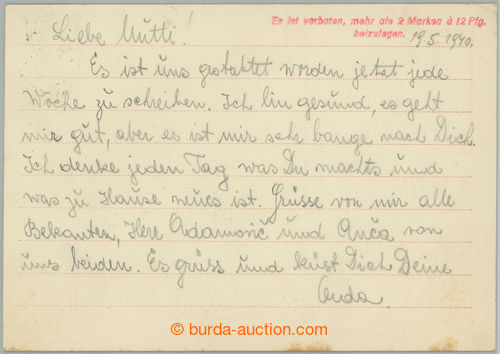 Es ist verboten, mehr als 2 Marken à 12 Pfg.
beizulegen.
Liebe Mutti! 19.5.1940.
Es ist uns gestattet worden jetzt jede
Woche zu schreiben. Ich bin gesund, es geht
mir gut, aber es ist mir sehr bange nach Dich.
Ich denke jeden Tag was Du machts und
was zu Hause neues ist. Grüsse von mir alle
Bekanten, Herr Adamovič und Anča von
uns beiden. Es grüss und küst Dich Deine
burda-auction.com